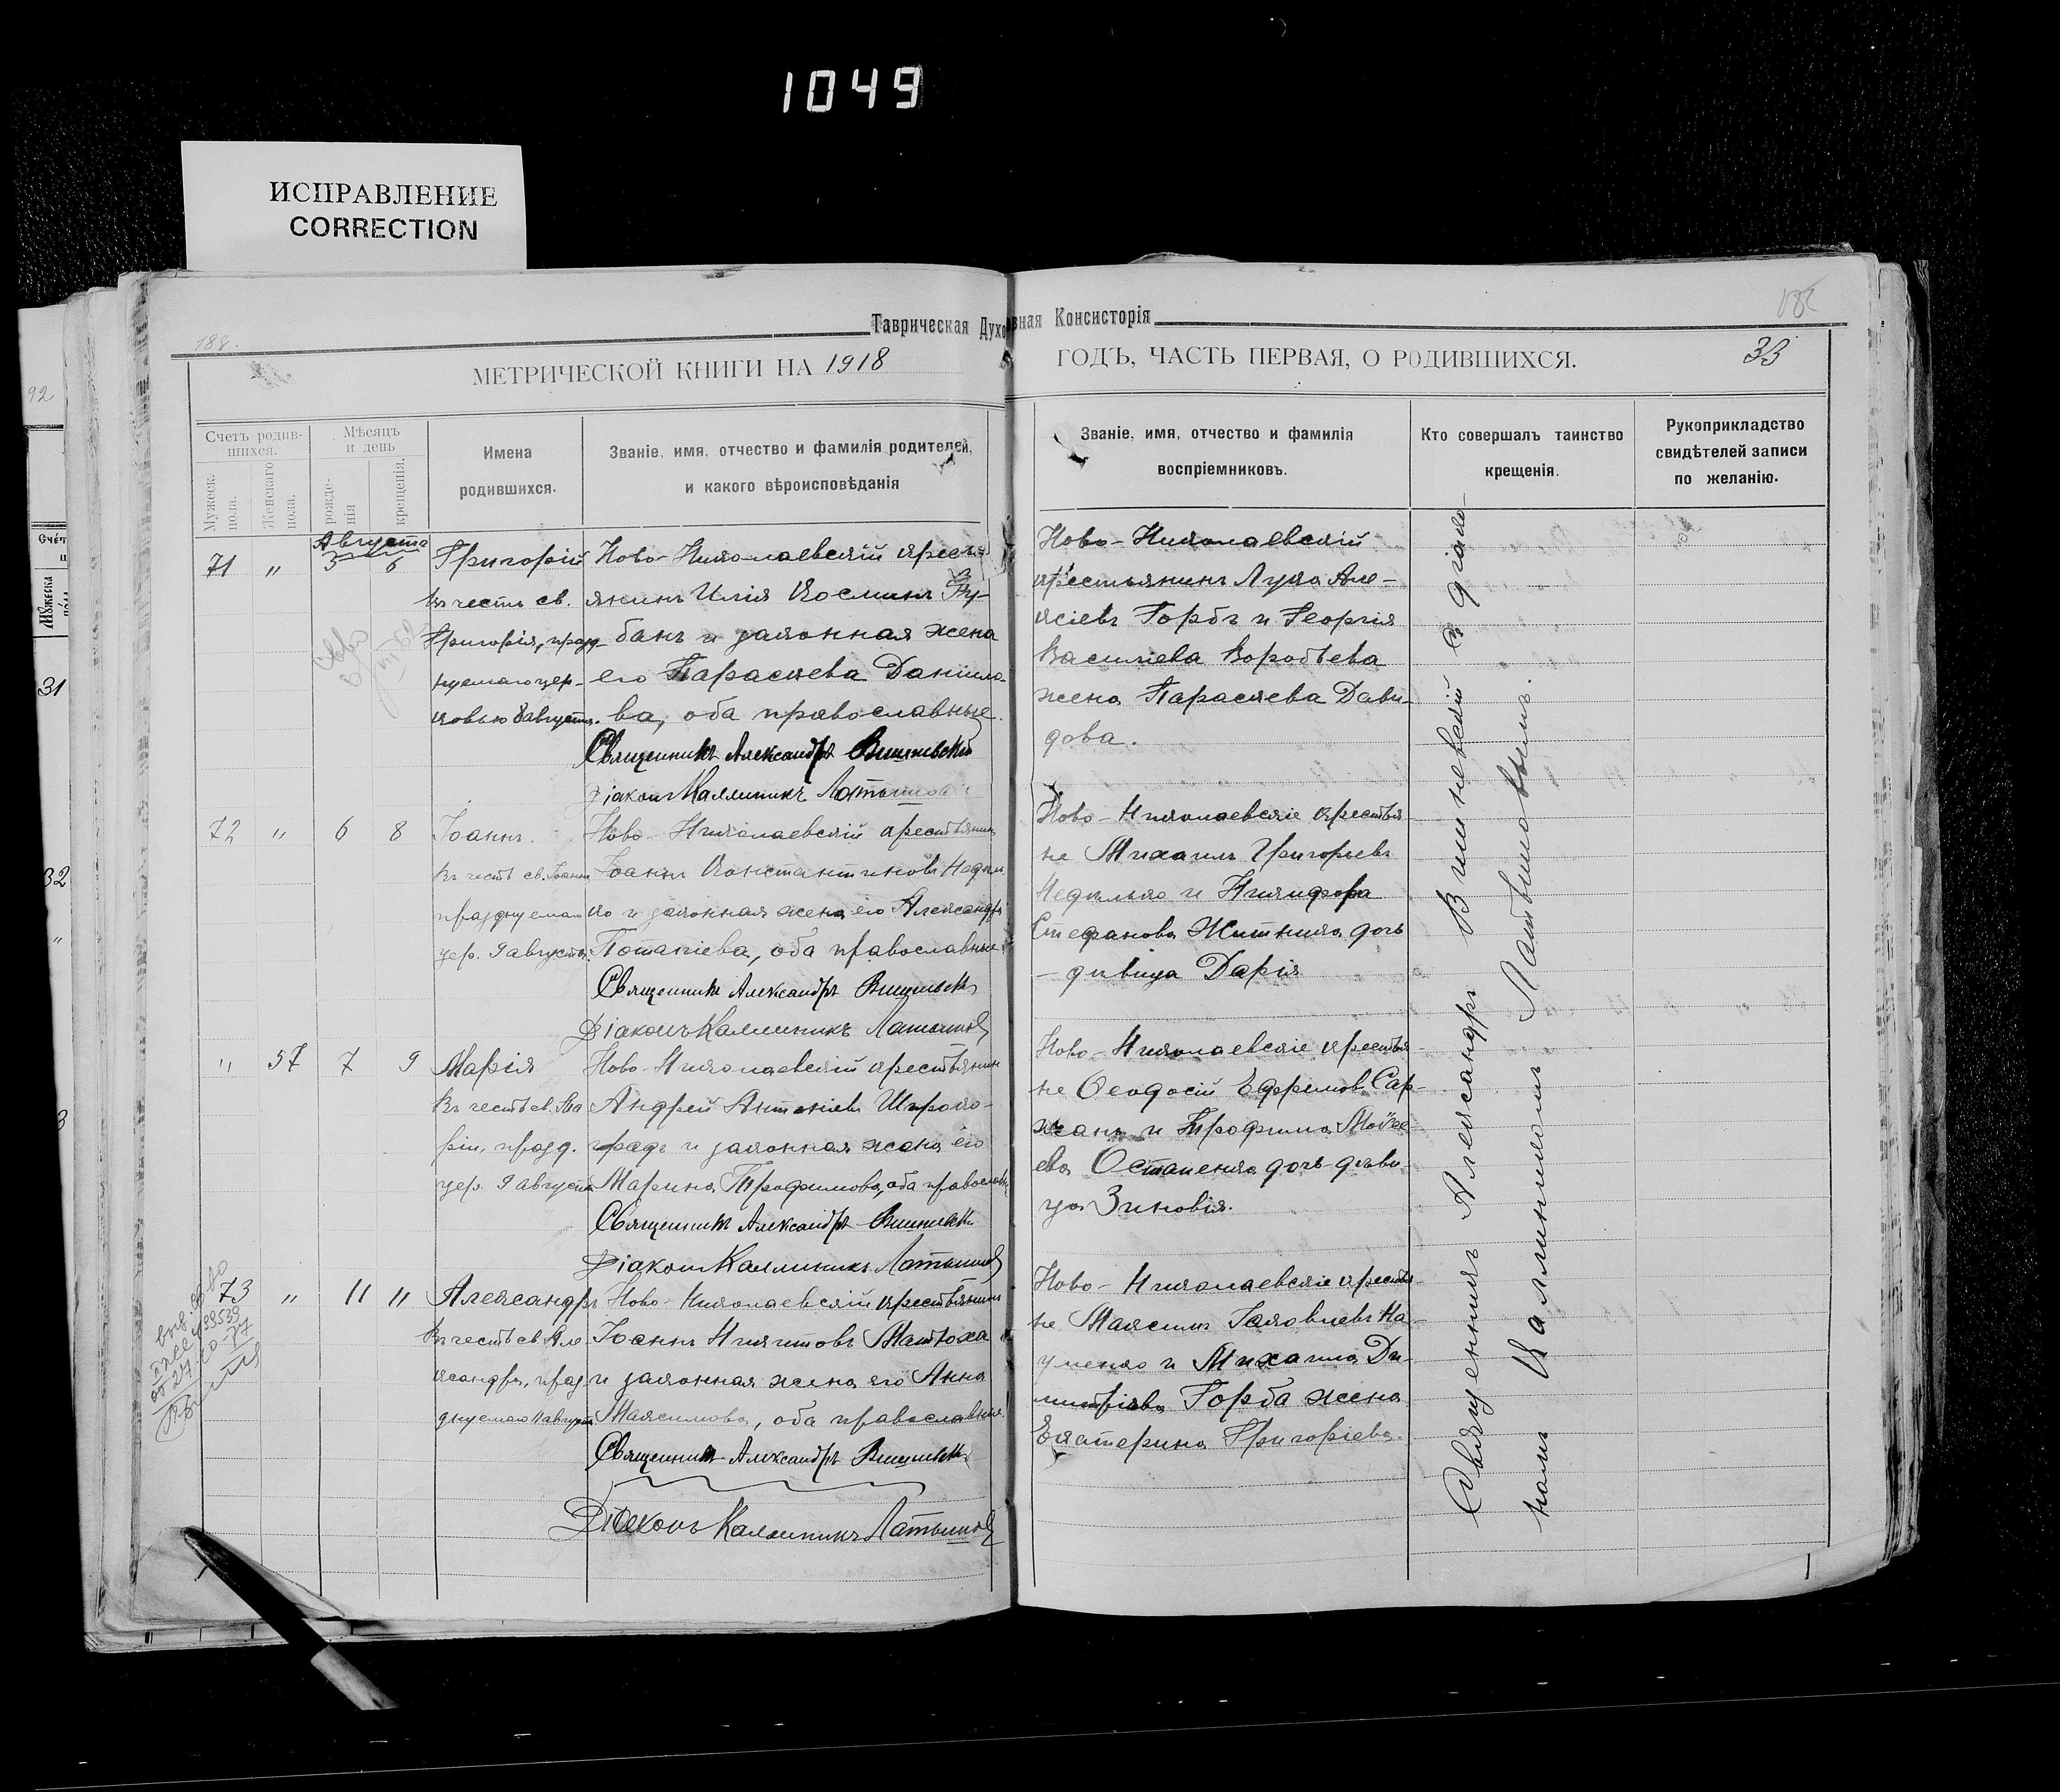 1049
ИСПРАВЛЕНИЕ
CORRECTION
Таврическая Духовная Консисторія
188.
МЕТРИЧЕСКОЙ КНИГИ НА 1918
ГОДЪ, ЧАСТЬ ПЕРВАЯ, О РОДИВШИХСЯ.
33
92
Счетъ родив-
шихся.
Мужеск. пола.
Женскаго пола.
Мѣсяцъ
и день
рожде-
нія
крещенія.
Имена
родившихся.
Званіе, имя, отчество и фамилія родителей,
и какого вѣроисповѣданія
Званіе, имя, отчество и фамилія
воспріемниковъ.
Кто совершалъ таинство
крещенія.
Рукоприкладство
свидѣтелей записи
по желанію.
31
32
3
Августа
71 " 5 6
Григорій
Въ честь св.
Григорія, празд-
нуемаго цер-
ковью 8 августа.
Ново-Николаевскій кресть-
янинъ Илія Косминъ
банъ и законная жена
его Параскева Даніило-
ва, оба православные.
Священникъ Александръ Вишневскій
Діаконъ Каллиникъ Латышовъ
Ново-Николаевскій
крестьянинъ Лука Але-
ксіевъ Горбъ и Георгія
Василіева Воробьева
жена Параскева Дави-
дова.
72 " 6 8
Іоаннъ.
Въ честь св. Іоанна
празднуемаго
цер. 9 августа.
Ново-Николаевскій крестьянинъ
Іоаннъ Константиновъ Недѣль
ко и законная жена его Александра
Потапіева, оба православные.
Священникъ Александръ Вишневскій
Діаконъ Каллиникъ Латышовъ
Ново-Николаевскіе крестья
не Михаилъ Григорьевъ
Недѣлько и Никифора
Стефанова Житника дочь
- дѣвица Дарія
" 57 7 9
Марія
Въ честь св. Ма
ріи, празд.
цер. 9 августа
Ново-Николаевскій крестьянинъ
Андрей Антоніевъ Широко-
градъ и законная жена его
Марина Трофимова, оба православн.
Священникъ Александръ Вишневскій
Діаконъ Каллиникъ Латышовъ
Ново-Николаевскіе крестья-
не Ѳеодосій Ефримовъ Сар-
жанъ и Трофима Моѵсе
ева Остапенка дочь-дѣви
ца Зиновія.
73 " 11 11
Александръ
Въ честь св. Але
ксандра, праз
днуемаго 11 августа
Ново-Николаевскій крестьянинъ
Іоаннъ Никитовъ Матюха
и законная жена его Анна
Максимова, оба православные.
Священникъ Александръ Вишневскій
Діаконъ Каллиникъ Латышовъ
Ново-Николаевскіе крестья-
не Максимъ Іаковлевъ На-
уменко и Михаила Ди-
митріева Горба жена
Екатерина Григоріева.
Священникъ Александръ Вишневскій съ діако-
номъ Каллиникомъ Латышовымъ.